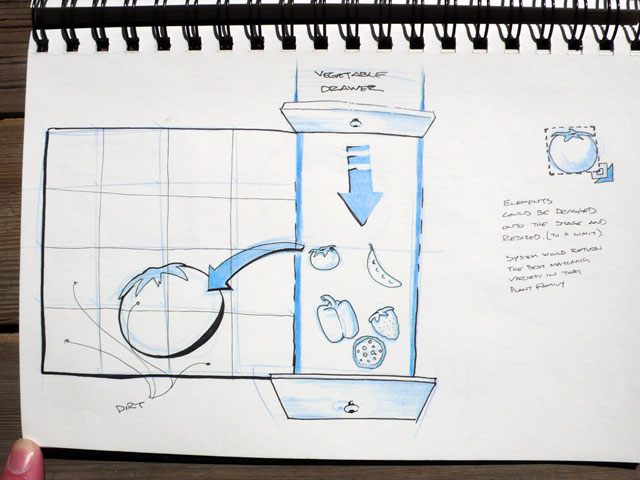 VEGETABLE
DRAWER
ELEMENTS
COULD BE DRAGGED
ONTO THE STAGE AND
RESIZED. (TO A LIMIT).
SYSTEM WOULD RETURN
THE BEST MATCHING
VARIETY IN THAT
PLANT FAMILY
DIRT